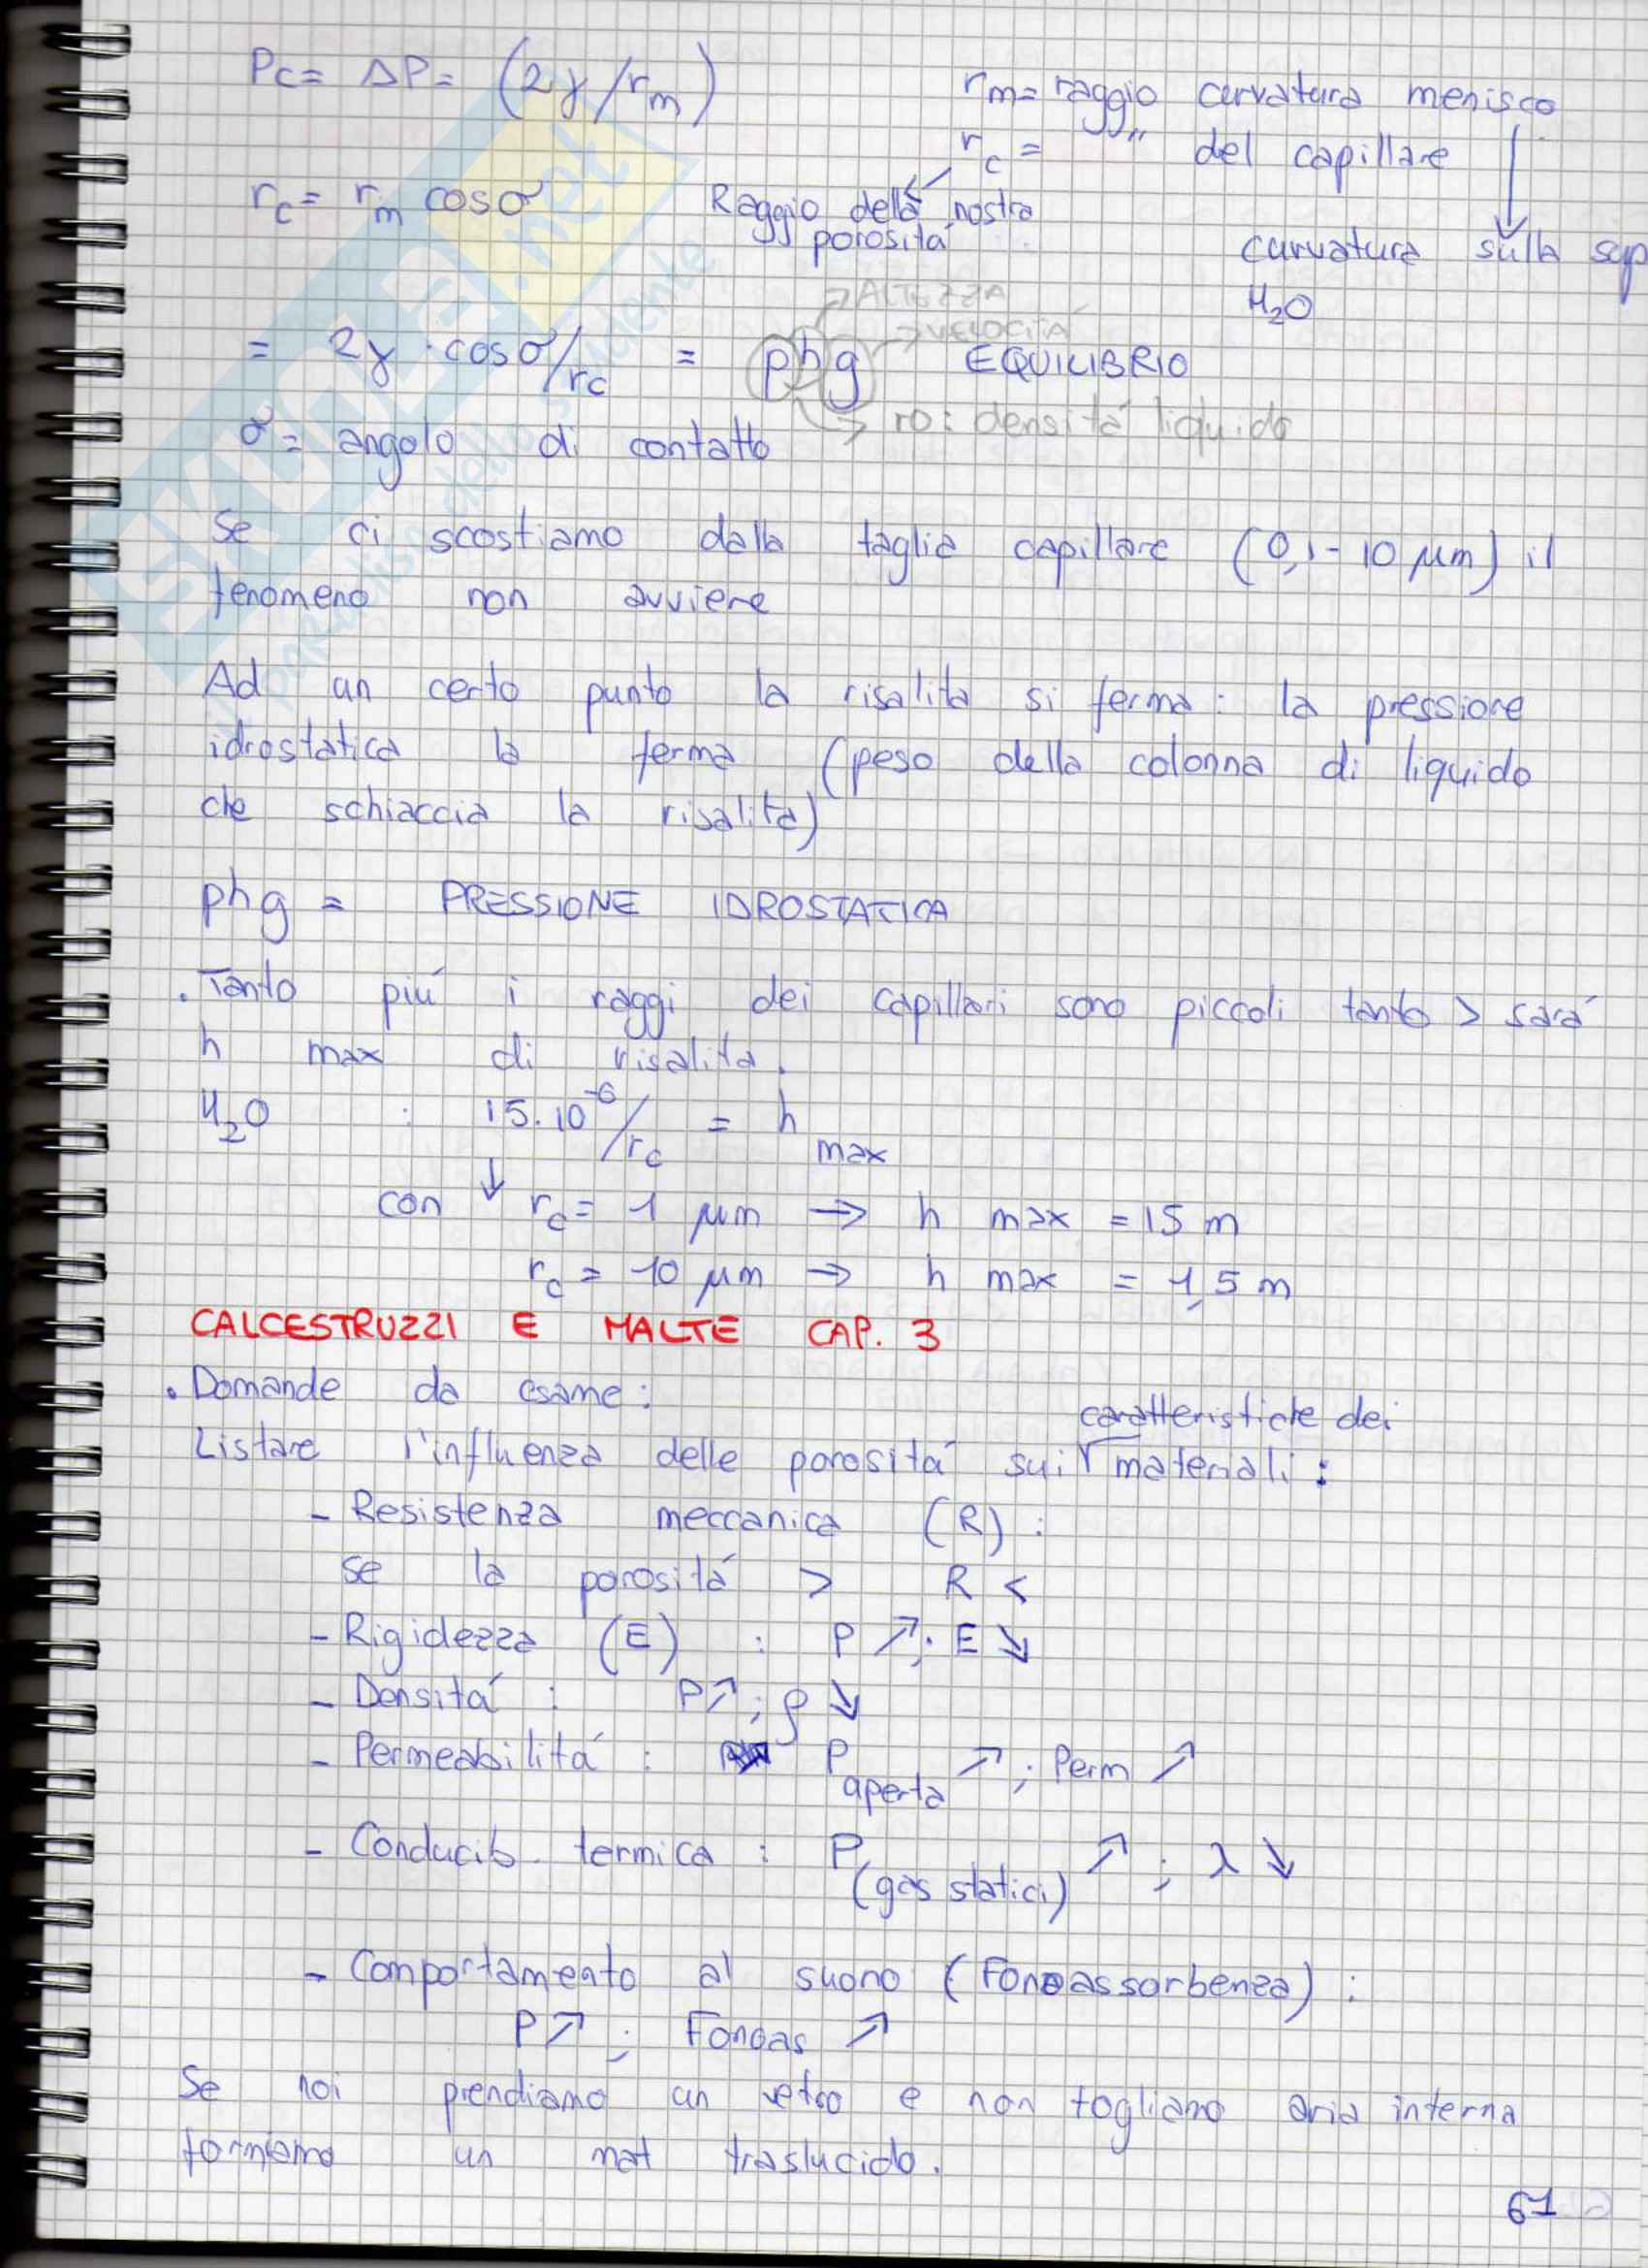 Pc = ΔP = (2γ/rm)
rm = raggio curvatura menisco
rc = " del capillare
rc = rm cosσ
Raggio della nostra
porosità
curvatura sulla sup
H2O
ALTEZZA
VELOCITÀ
= 2γ · cosσ/rc = ρhg EQUILIBRIO
ro: densità liquido
σ = angolo di contatto
Se ci scostiamo dalla taglia capillare (0,1-10 μm) il
fenomeno non avviene
Ad un certo punto la risalita si ferma: la pressione
idrostatica la ferma (peso della colonna di liquido
che schiaccia la risalita)
ρhg = PRESSIONE IDROSTATICA
. Tanto più i raggi dei capillari sono piccoli tanto > sarà
h max di risalita.
H2O : 15·10^-6/rc = h max
con ↓ rc = 1 μm → h max = 15 m
rc = 10 μm → h max = 1,5 m
CALCESTRUZZI E MALTE CAP. 3
. Domande da esame:
caratteristiche dei
Listare l'influenza delle porosità sui materiali:
- Resistenza meccanica (R) :
se la porosità > R <
- Rigidezza (E) : P ↗; E ↘
- Densità : P↗; ρ ↘
- Permeabilità : P aperta ↗; Perm ↗
- Conducib. termica : P (gas statici) ↗; λ ↘
- Comportamento al suono (Fonoassorbenza) :
P↗; Fonoas ↗
Se noi prendiamo un vetro e non togliamo aria interna
formiamo un mat traslucido.
61
SKUOLA.net
il paradiso dello studente